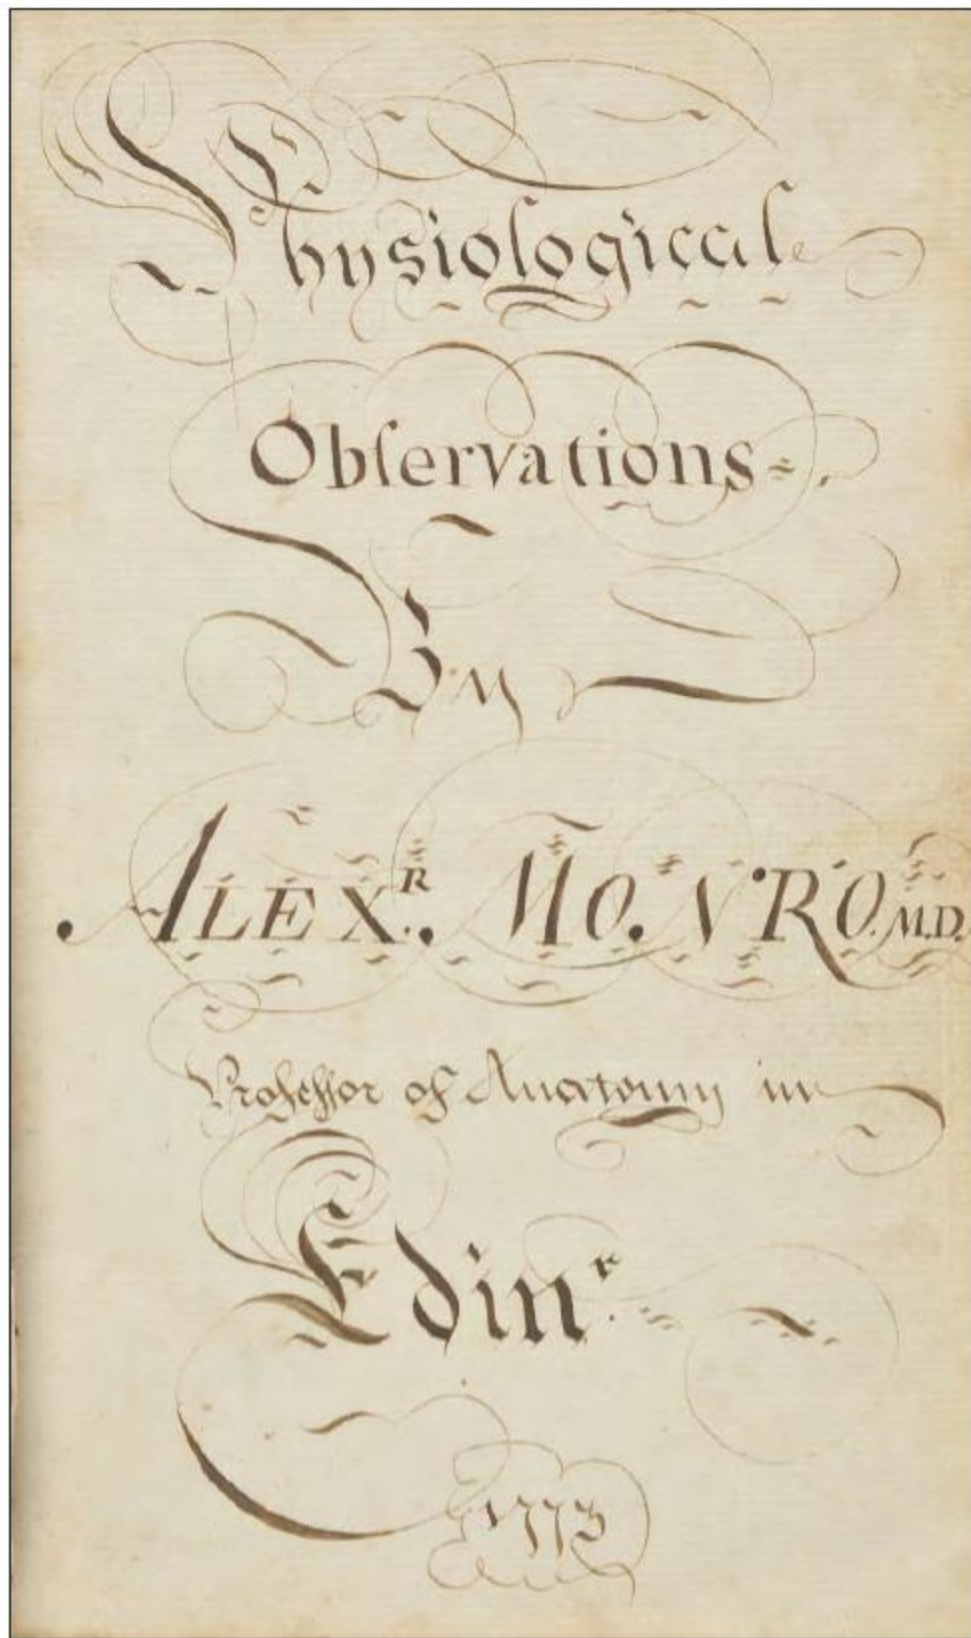 Physiological
Obſervations
By
ALEXR. MONRO. M.D.
Profeſſor of Anatomy in
Edinr.
1773